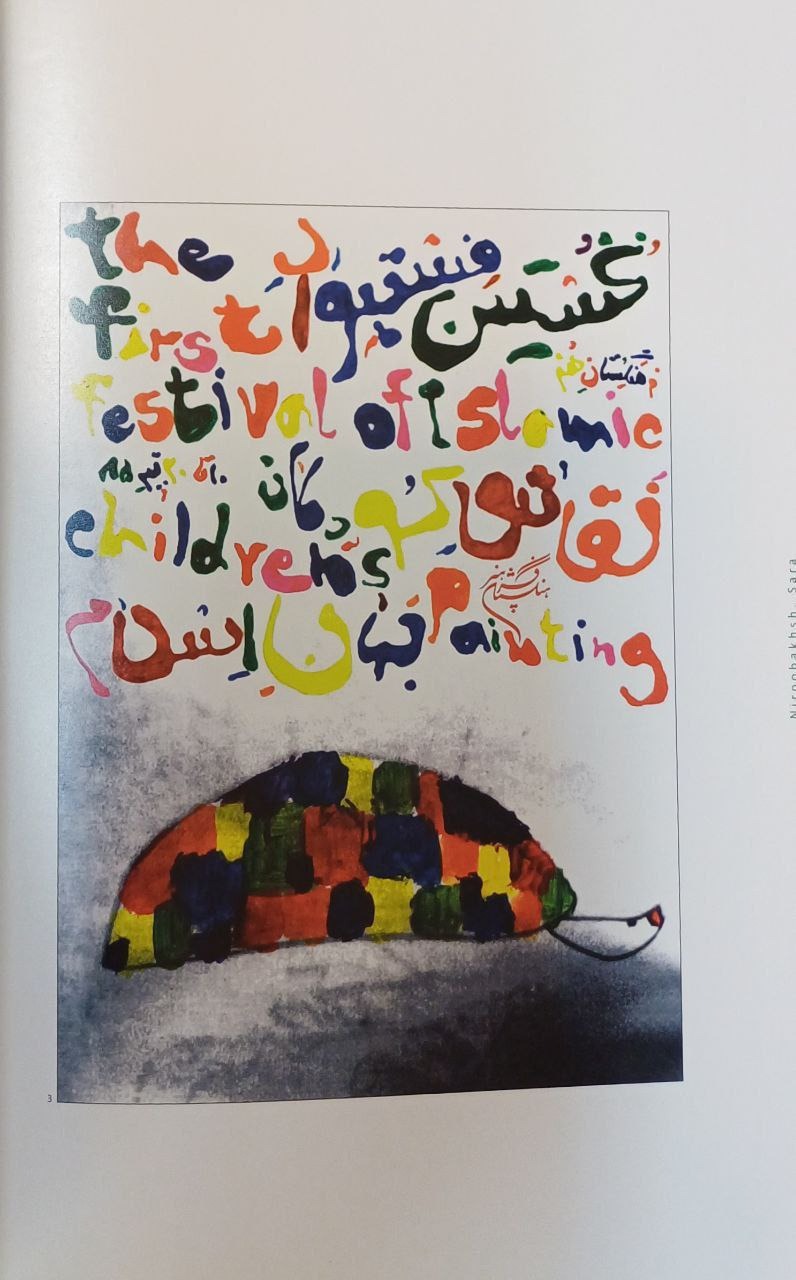 the
نخستین فستیوال
first
فرهنگستان هنر
festival of Islamic
۱۰ تا ۲۰ تیر ۸۵
نقاشی کودکان
children's
فرهنگستان هنر
painting
جهان اسلام
3
Niroobakhsh, Sara